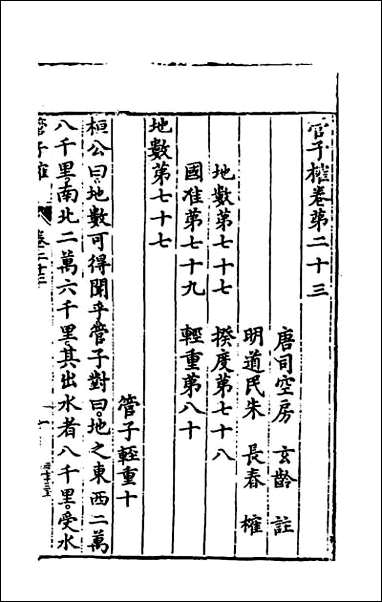 管子榷卷第二十三
唐司空房 玄齡 註
明道民朱 長春 榷
地數第七十七 揆度第七十八
國准第七十九 輕重第八十
地數第七十七
管子輕重十
桓公曰地數可得聞乎管子對曰地之東西二萬
八千里南北二萬六千里其出水者八千里受水
管子榷 卷二十三 一